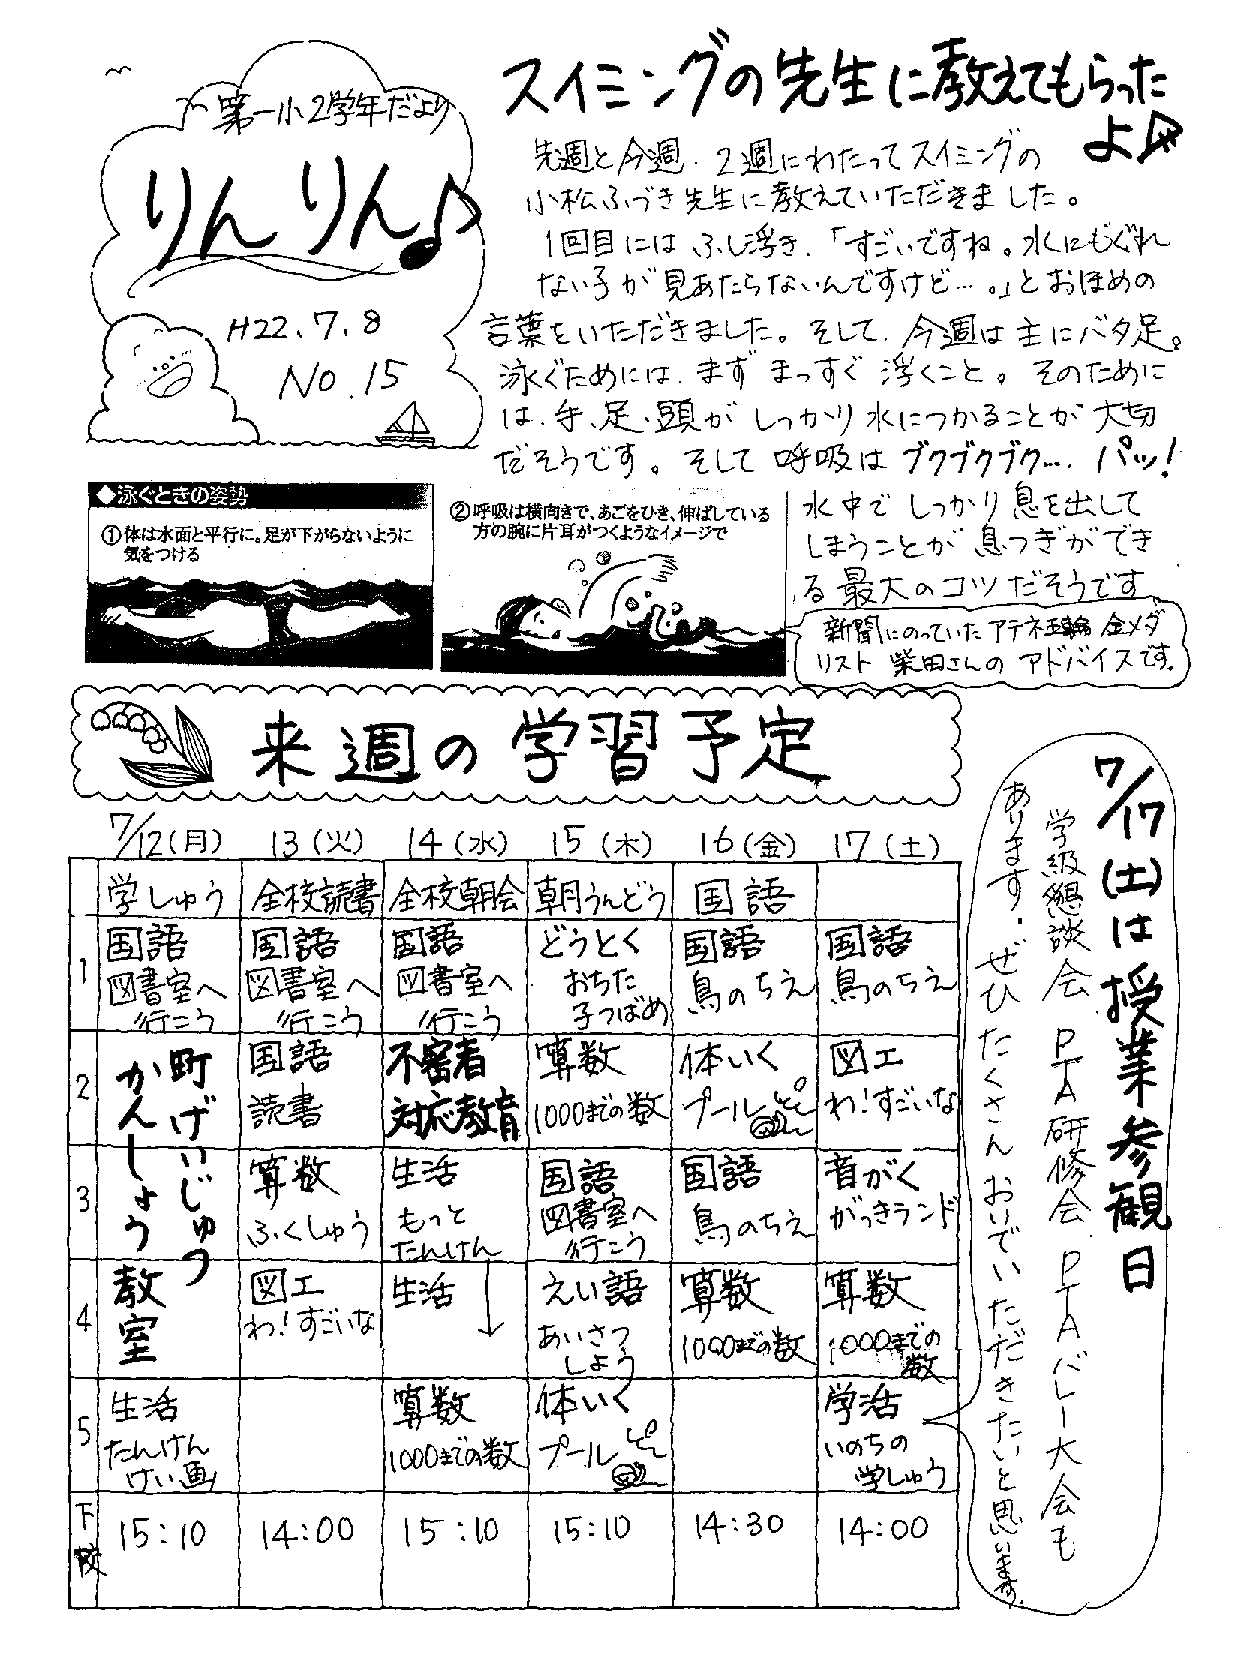 第一小2学年だより
りんりん♪
H22.7.8
No.15
スイミングの先生に教えてもらった
よ♪
先週と今週、2週にわたってスイミングの
小松ふづき先生に教えていただきました。
1回目には ふし浮き、「すごいですね。水にもぐれ
ない子が見あたらないんですけど…。」とおほめの
言葉をいただきました。そして、今週は主にバタ足。
泳ぐためには、まず まっすぐ 浮くこと。そのために
は、手、足、頭が しっかり水につかることが大切
だそうです。そして呼吸はブクブクブク…、パッ!
水中でしっかり息を出して
しまうことが息つぎができ
る最大のコツだそうです。
新聞にのっていたアテネ五輪金メダ
リスト柴田さんのアドバイスです。
◆泳ぐときの姿勢
①体は水面と平行に。足が下がらないように
気をつける
②呼吸は横向きで、あごをひき、伸ばしている
方の腕に片耳がつくようなイメージで
来週の学習予定
7/12(月) 13(火) 14(水) 15(木) 16(金) 17(土)
学しゅう 全校読書 全校朝会 朝うんどう 国語
1 国語 国語 国語 どうとく 国語 国語
図書室へ 図書室へ 図書室へ おちた 鳥のちえ 鳥のちえ
行こう 行こう 行こう 子つばめ
2 町げいじゅつ 国語 不審者 算数 体いく 図工
かんしょう 読書 対応教育 1000までの数 プール わ!すごいな
3 算数 生活 国語 国語 音がく
ふくしゅう もっと 図書室へ 鳥のちえ がっきランド
たんけん 行こう
4 教室 図工 生活 えい語 算数 算数
わ!すごいな あいさつ 1000までの数 1000までの
しよう 数
5 生活 算数 体いく 学活
たんけん 1000までの数 プール いのちの
けい画 学しゅう
下校 15:10 14:00 15:10 15:10 14:30 14:00
7/17(土)は授業参観日
学級懇談会 PTA研修会 PTAバレー大会も
あります。ぜひたくさんおいでいただきたいと思います。